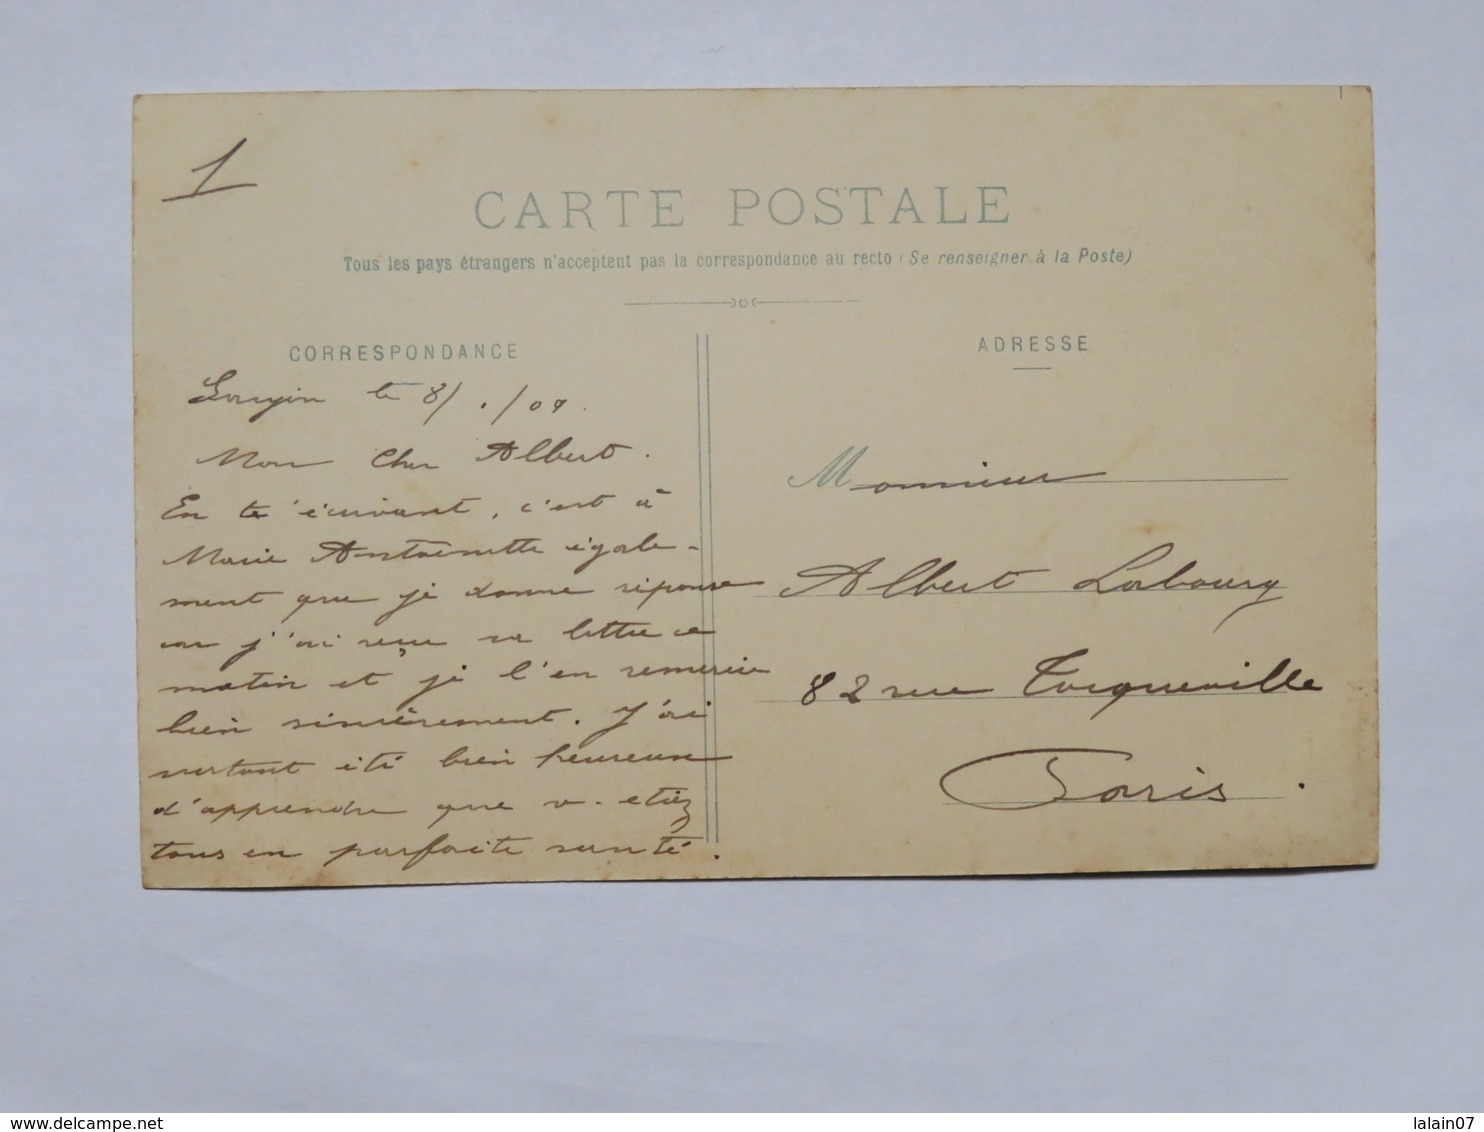 1
CARTE POSTALE
Tous les pays étrangers n'acceptent pas la correspondance au recto (Se renseigner à la Poste)
CORRESPONDANCE
le 8/ ./07.
Mon cher Albert.
En te écrivant, c'est à
Marie Antoinette égale-
ment que je donne réponse
car j'ai reçu sa lettre ce
matin et je l'en remercie
bien sincèrement. J'ai
surtout été bien heureux
d'apprendre que v. etiez
tous en parfaite santé.
ADRESSE
Monsieur
Albert Laboury
82 rue Tocqueville
Paris.
delcampe.net
lalain07